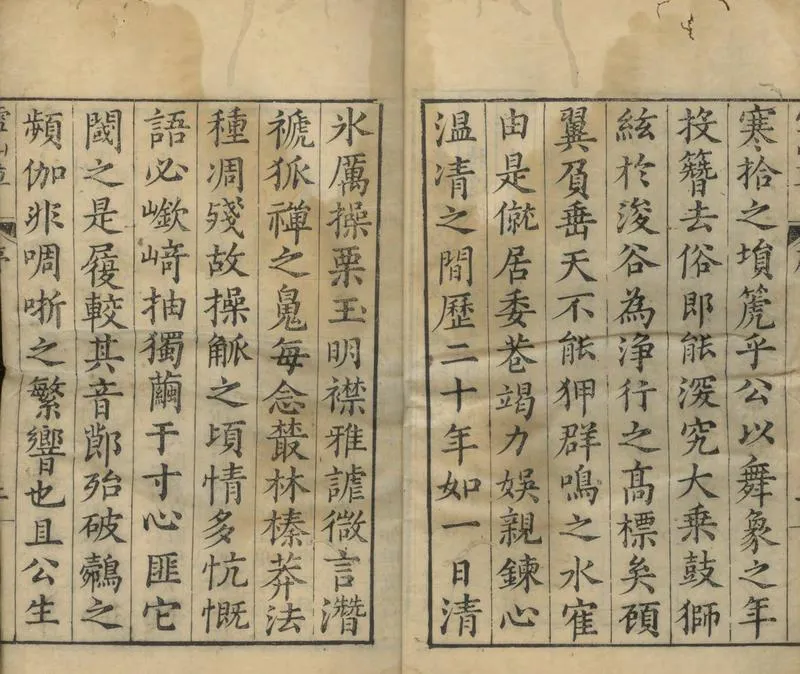 寒拾之塤箎乎公以舞象之年
投簪去俗即能深究大乗鼓獅
絃於浚谷為淨行之高標矣頋
翼負垂天不能狎群鳴之水寉
由是僦居委巷竭力娱親鍊心
温清之間歷二十年如一日清
氷厲操栗玉明襟雅謔微言濳
褫狐禪之䰟每念叢林榛莽法
種凋殘故操觚之頃情多忼慨
語必嶔﨑抽獨繭于寸心匪它
閾之是履較其音節殆破鷇之
頻伽非啁哳之繁響也且公生